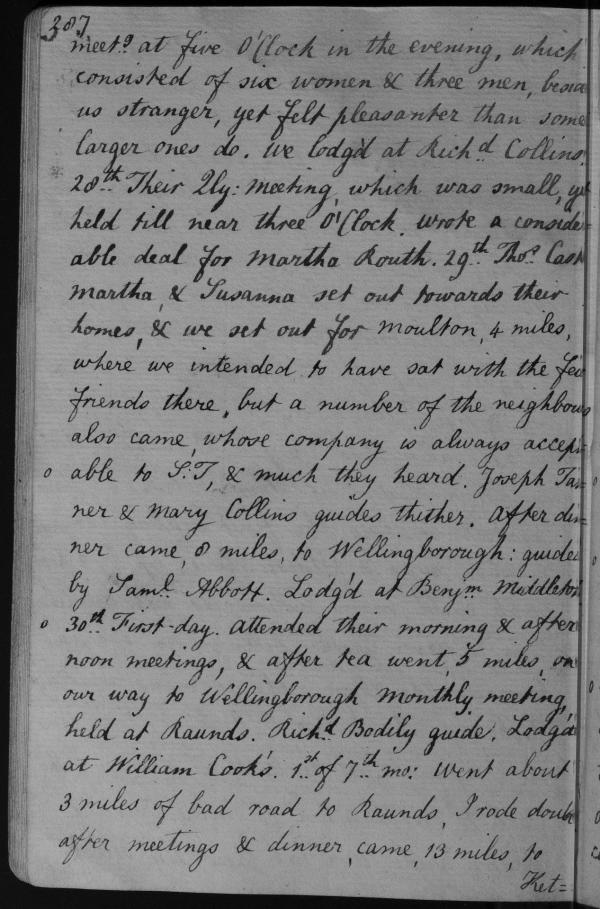 387
meetg at five O'Clock in the evening, which
consisted of six women & three men, beside
us stranger, yet felt pleasanter than some
larger ones do. We lodg'd at Richd Collins.
28th Their Qly: Meeting, which was small, yet
held till near three O'Clock. wrote a consider=
able deal for Martha Routh. 29th Thos Cash
Martha, & Susanna set out towards their
homes, & we set out for Moulton, 4 miles,
where we intended to have sat with the few
friends there, but a number of the neighbours
also came, whose company is always accept=
able to S:T, & much they heard. Joseph Tan=
ner & Mary Collins guides thither. After din=
ner came, 8 miles, to Wellingborough: guided
by Saml Abbott. Lodg'd at Benjm Middleton
30th First-day. attended their morning & after
noon meetings, & after tea went, 5 miles, on
our way to Wellingborough Monthly meeting,
held at Raunds. Richd Bodily guide. Lodg'd
at William Cook's. 1st of 7th mo: Went about
3 miles of bad road to Raunds, I rode double
after meetings & dinner, came, 13 miles, to
Ket=